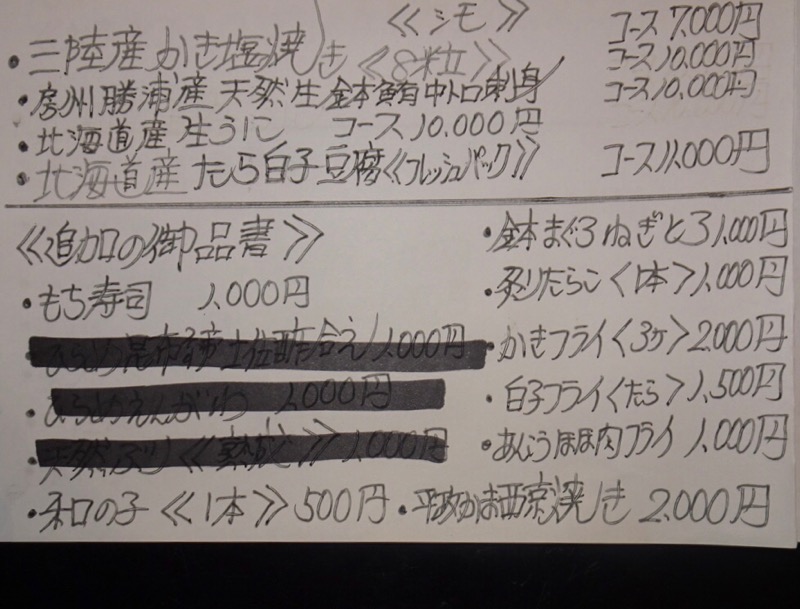 《シモ》 コース7,000円
・三陸産かき塩焼き《8粒》 コース10,000円
・房州勝浦産天然生本鮪中トロ刺身 コース10,000円
・北海道産生うに コース10,000円
・北海道産たら白子豆腐《フレッシュパック》 コース11,000円
《追加の御品書》
・もち寿司 1,000円
・ひらめ昆布 土佐酢合え 1,000円
・ひらめえんがわ 1,000円
・天然ぶり 1,000円
・和の子《1本》500円
・本まぐろねぎとろ1,000円
・炙りたらこ〈1本〉1,000円
・かきフライ〈3ヶ〉2,000円
・白子フライ〈たら〉1,500円
・あんこうほほ肉フライ 1,000円
・平政かま西京焼き 2,000円